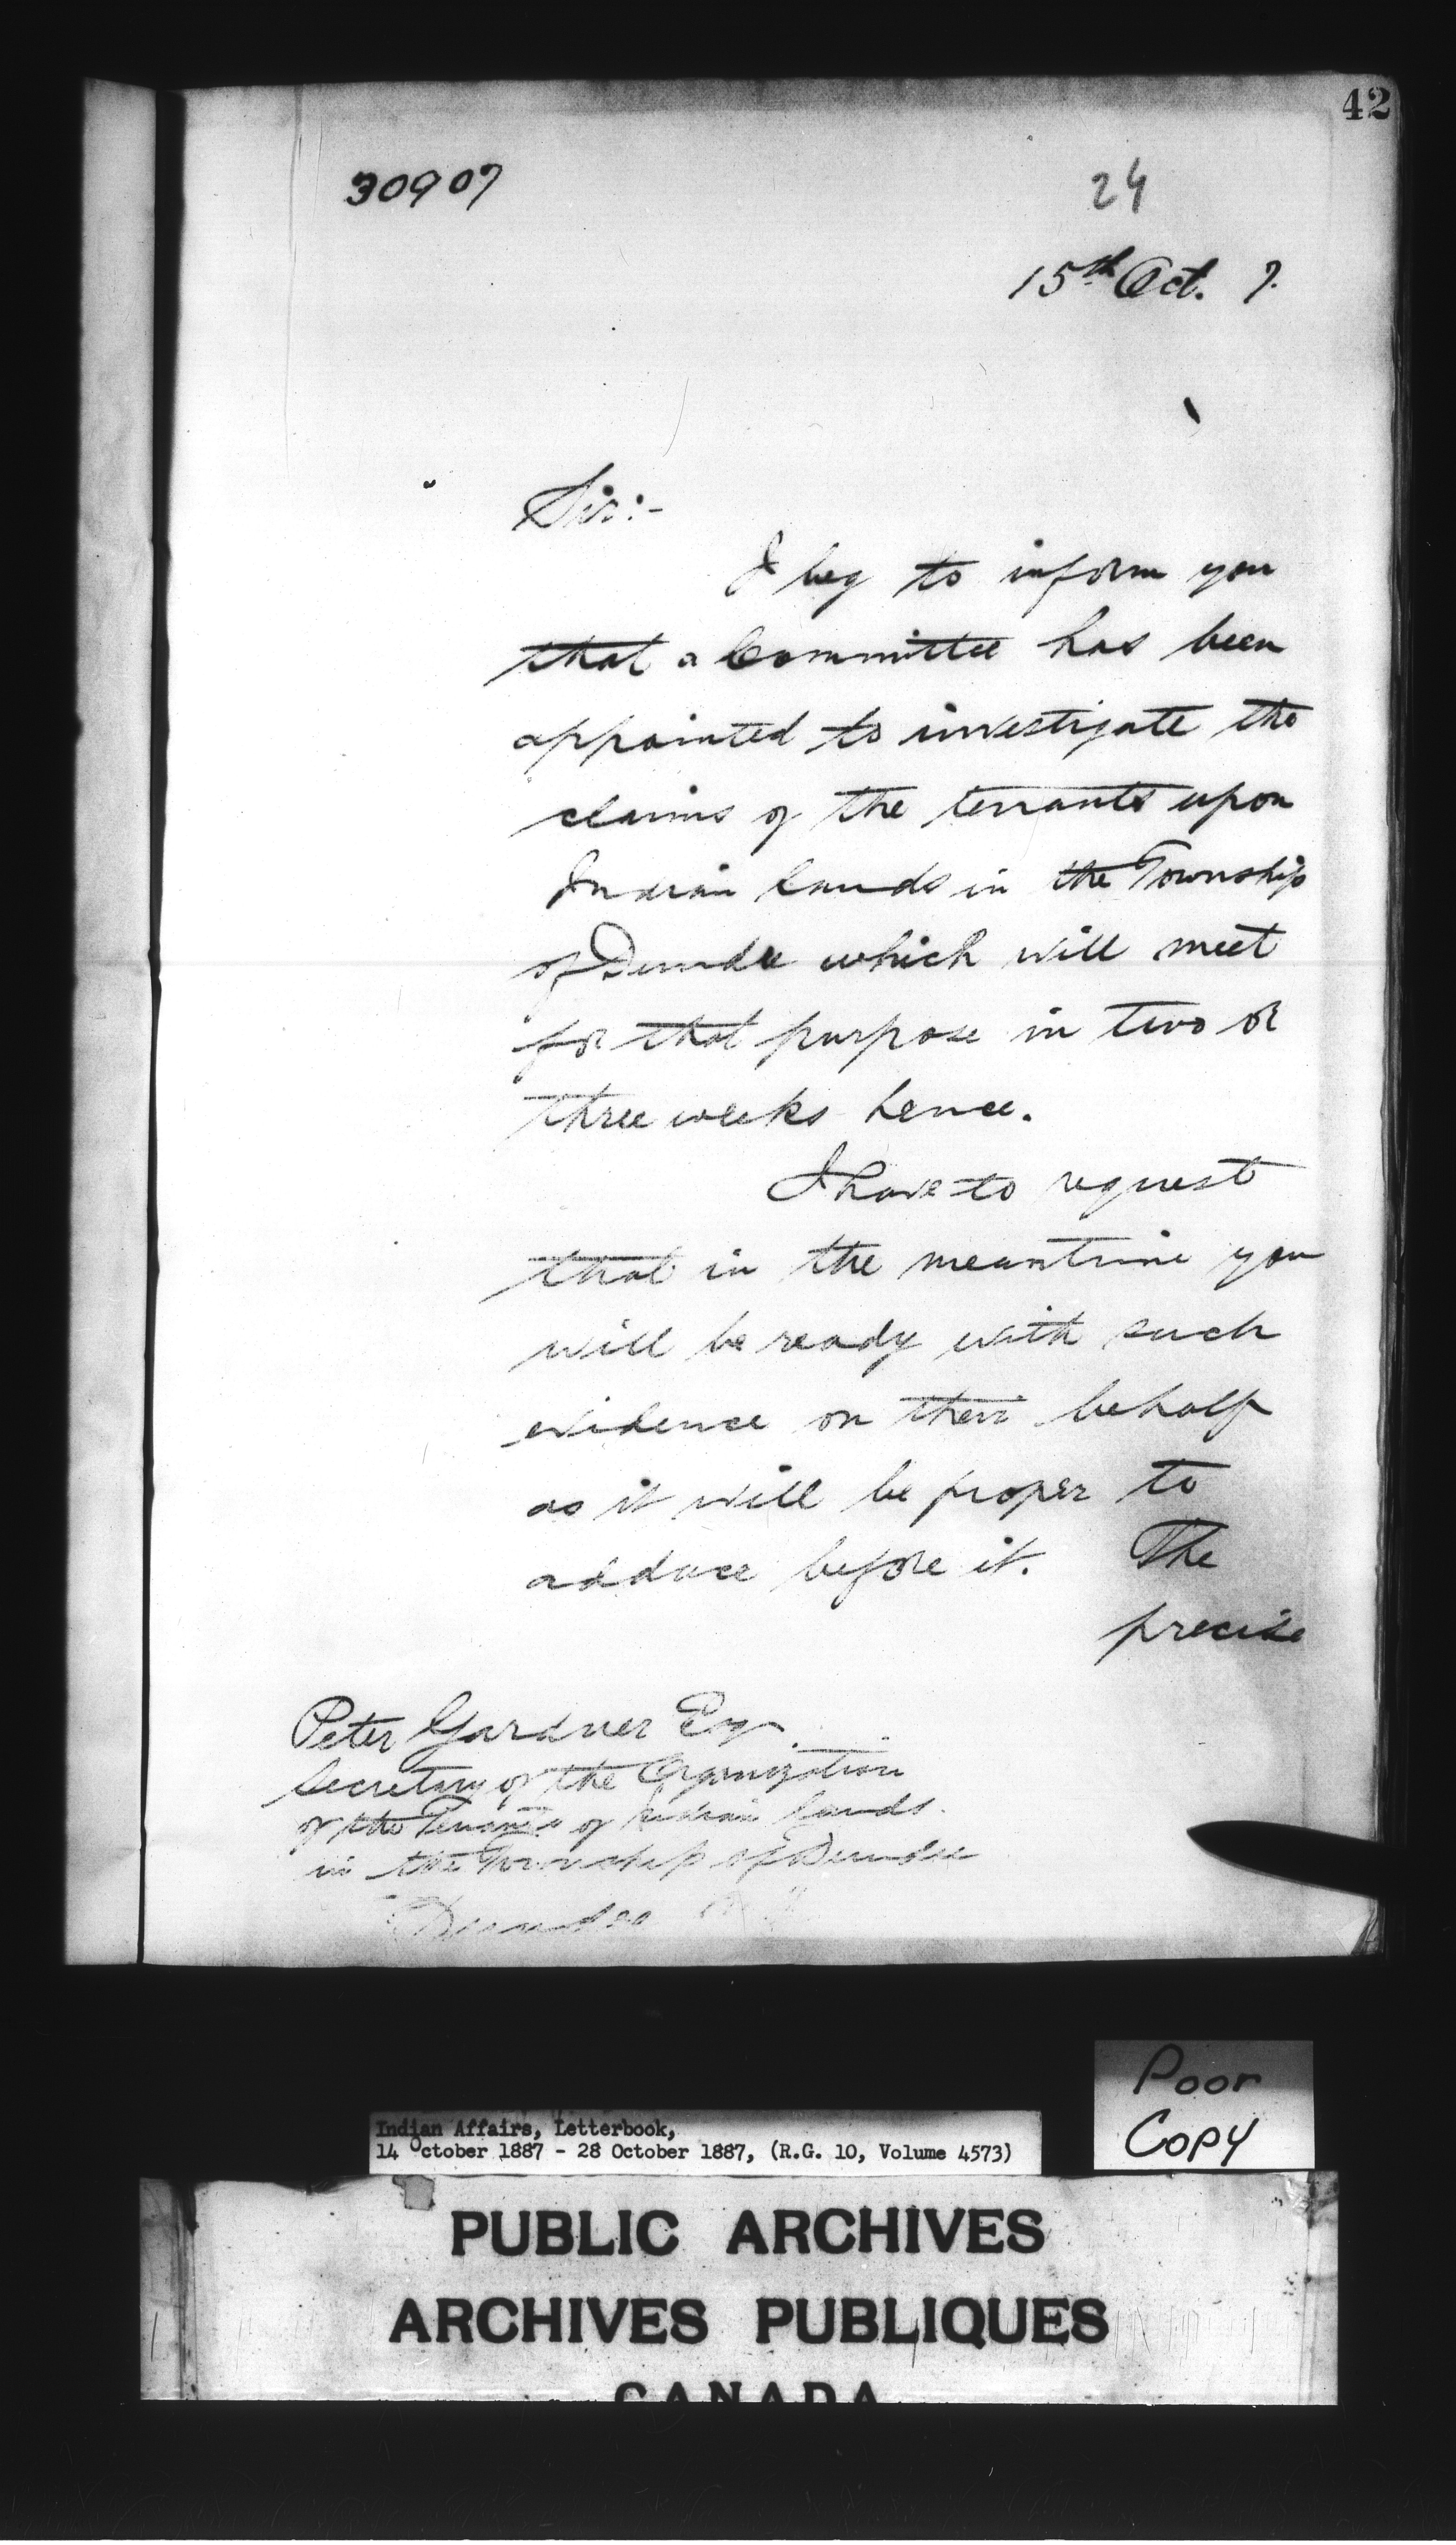 42
30907
24
15th Oct. 7.
Sir:-
I beg to inform you
that a Committee has been
appointed to investigate the
claims of the tenants upon
Indian lands in the Township
of Dundee which will meet
for that purpose in two or
three weeks hence.
I have to request
that in the meantime you
will be ready with such
evidence on their behalf
as it will be proper to
adduce before it. The
precise
Peter Gardner Esq.
Secretary of the Organization
of the Tenants of Indian lands.
in the Township of Dundee
Dundee
Poor
Copy
Indian Affairs, Letterbook,
14 October 1887 - 28 October 1887, (R.G. 10, Volume 4573)
PUBLIC ARCHIVES
ARCHIVES PUBLIQUES
CANADA